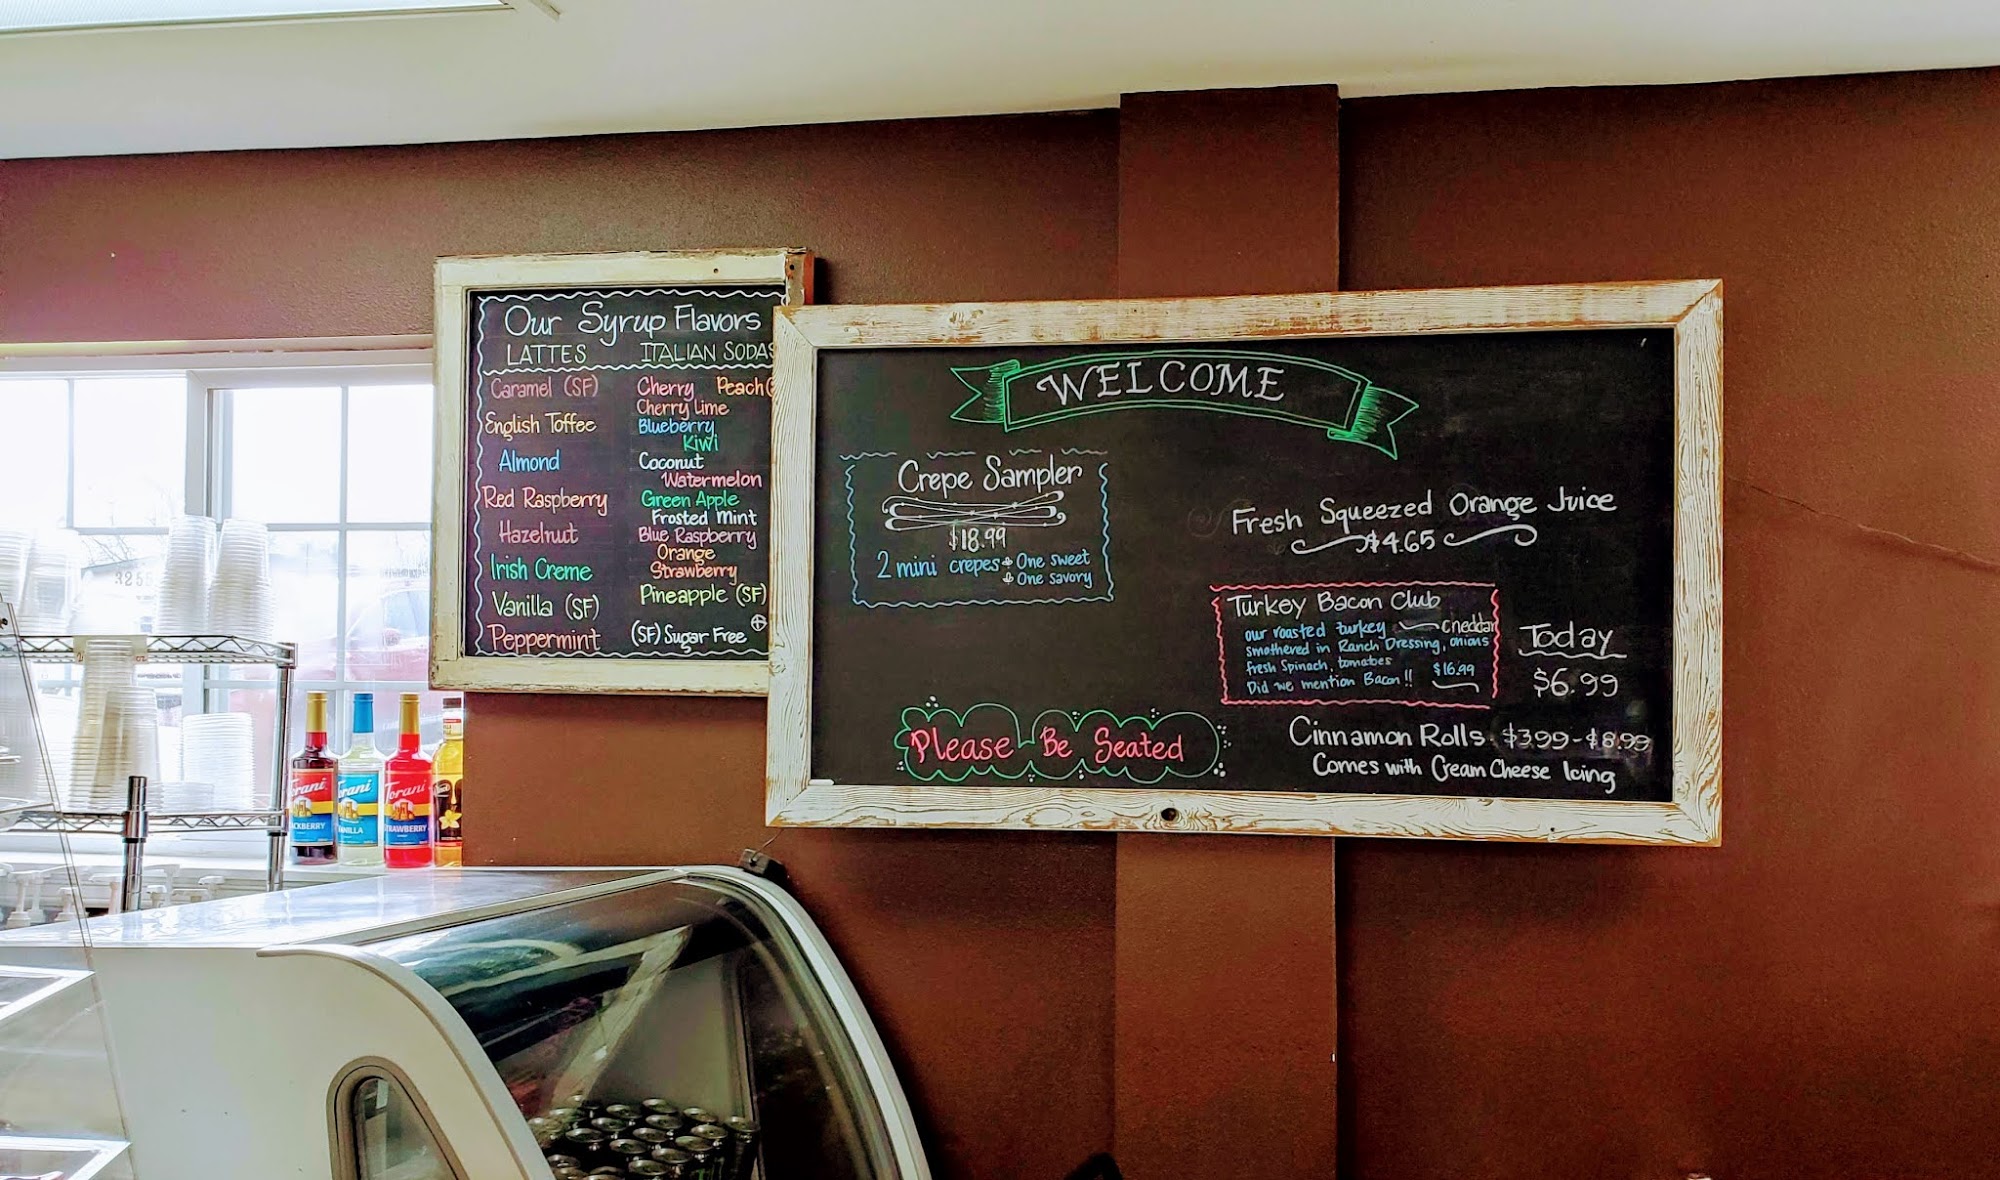 Our Syrup Flavors
LATTES
Caramel (SF)
English Toffee
Almond
Red Raspberry
Hazelnut
Irish Creme
Vanilla (SF)
Peppermint
ITALIAN SODAS
Cherry Peach
Cherry Lime
Blueberry
Kiwi
Coconut
Watermelon
Green Apple
Frosted Mint
Blue Raspberry
Orange
Strawberry
Pineapple (SF)
(SF) Sugar Free
WELCOME
Crepe Sampler
$18.99
2 mini crepes One sweet
One savory
Please Be Seated
Fresh Squeezed Orange Juice
$4.65
Turkey Bacon Club
our roasted turkey cheddar
smothered in Ranch Dressing, onions
fresh Spinach, tomatoes $16.99
Did we mention Bacon!!
Today
$6.99
Cinnamon Rolls $3.99-$8.99
Comes with Cream Cheese Icing
Torani
Torani
VANILLA
Torani
STRAWBERRY